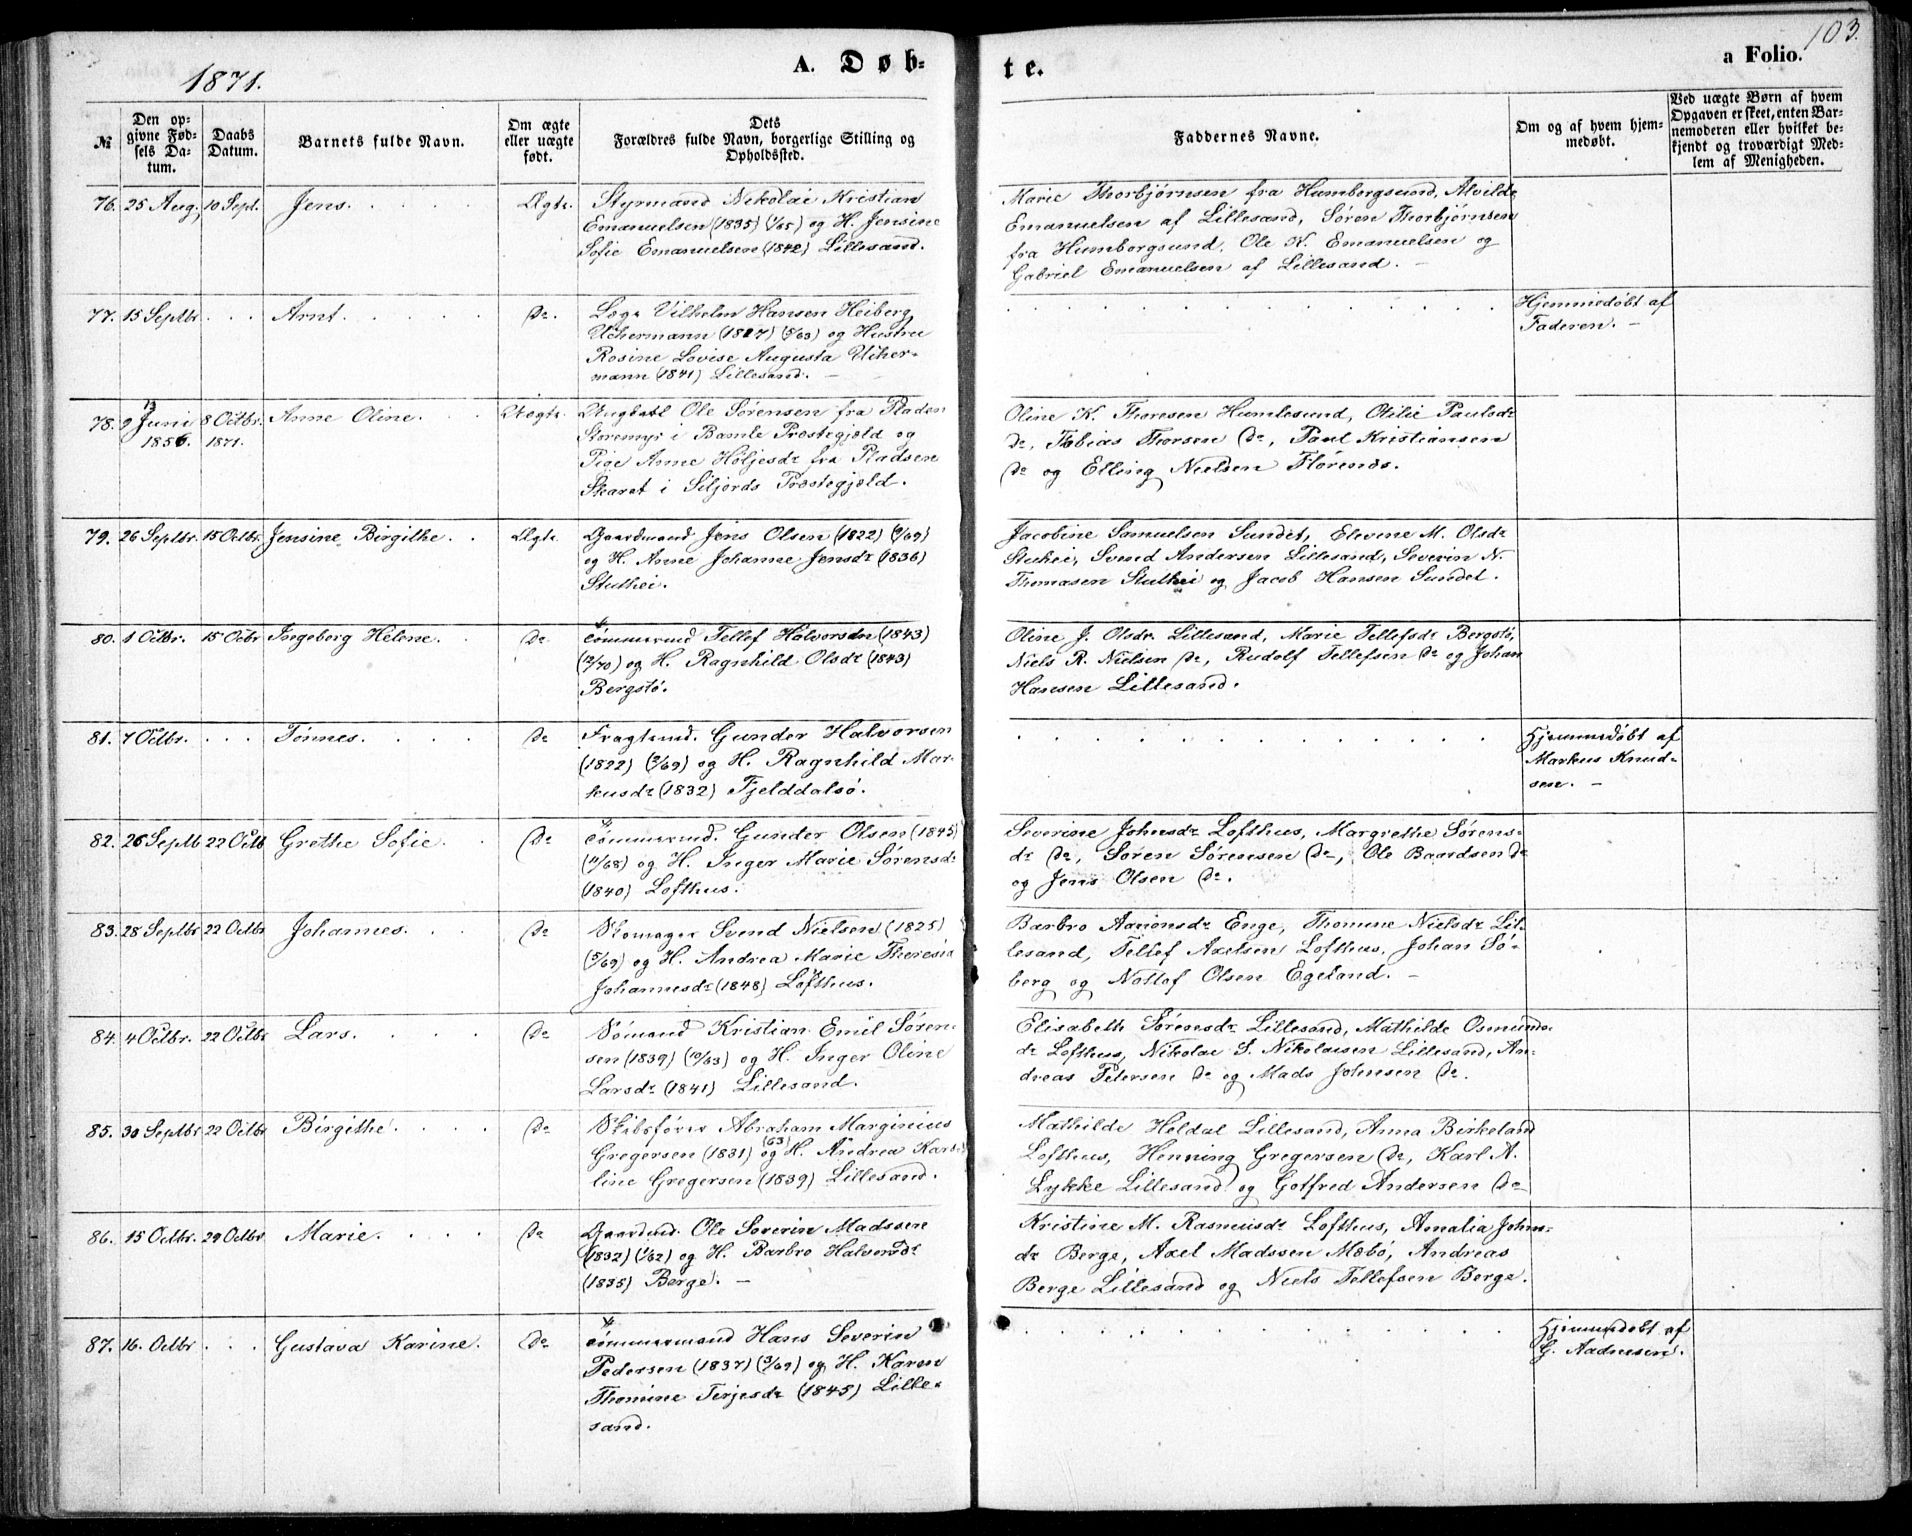 103.
1871.
A. Døb-
te.
a Folio.
№
Den op-
givne Fød-
sels Da-
tum.
Daabs
Datum.
Barnets fulde Navn.
Om ægte
eller uægte
født.
Dets
Forældres fulde Navn, borgerlige Stilling og
Opholdssted.
Faddernes Navne.
Om og af hvem hjem-
medøbt.
Ved uægte Børn af hvem
Opgaven er skeet, enten Bar-
nemoderen eller hvilket be-
kjendt og troværdigt Med-
lem af Menigheden.
76. 25 Aug. 10 Sept. Jens. Ægte
Styrmand Nikolai Kristian
Emanuelsen (1835) (1/65) og H. Jensine
Sofie Emanuelsen (1842) Lillesand.
Marie Thorbjørnsen fra Humborgsund, Alvilde
Emanuelsen af Lillesand, Søren Thorbjørnsen
fra Humborgsund, Ole N. Emanuelsen og
Gabriel Emanuelsen af Lillesand. –
77. 15 Septbr. Arnt. do.
Læge Vilhelm Hansen Heiberg
Uchermann (1827) (5/63) og Hustru
Rosine Lovise Augusta Ucher-
mann (1841) Lillesand. –
Hjemmedøbt af
Faderen. –
78. 9 Juni 1856. 8 Octbr. 1871. Anne Oline. Uægte.
Ungkarl Ole Sørensen fra Pladsen
Storemyr i Bamle Præstegjæld og
Pige Anne Høljesdr fra Pladsen
Skaret i Siljords Præstegjæld.
Oline K. Thoresen Humlesund, Otilie Paulsdr
do, Tobias Thorsen do, Paul Kristiansen
do og Elling Nielsen Florenæs.
79. 26 Septbr. 15 Octbr. Jensine Birgithe. Ægte
Gaardmand Jens Olsen (1822) (9/69)
og H. Anne Johanne Jensdr (1836)
Stuhei.
Jacobine Samuelsen Sundet, Elevine M. Olsdr
Stuhei, Svend Andersen Lillesand, Severin N.
Thomasen Stuhei og Jacob Hansen Sundet.
80. 1 Octbr. 15 Octbr Ingeborg Helene. do
Tømmermd Tellef Halvorsen (1843)
(12/70) og H. Ragnhild Olsdr (1843)
Bergstø.
Oline J. Olsdr. Lillesand, Marie Tellefsdr Bergstø,
Niels R. Nielsen do, Rudolf Tellefsen do og Johan
Hansen Lillesand.
81. 7 Octbr. Tønnes. do
Fragtemd. Gunder Halvorsen
(1822) (2/69) og H. Ragnhild Mar-
kusdr (1832) Fjelddalsø.
Hjemmedøbt af
Markus Knud-
sen. –
82. 26 Septb 22 Octb Grethe Sofie. do
Tømmermd. Gunder Olsen (1845)
(11/68) og H. Inger Marie Sørensdr
(1840) Lofthus.
Severine Johnsdr Lofthus, Margrethe Sørens-
dr do, Søren Sørensen do, Ole Baardsen do
og Jens Olsen do.
83. 28 Septbr 22 Octbr Johannes. do
Skomager Svend Nielsen (1825)
(5/69) og H. Andrea Marie Theresia
Johannesdr (1848) Lofthus.
Barbro Aanonsdr Enge, Thomine Nielsdr Lil-
lesand, Tellef Axelsen Lofthus, Johan Sø-
berg og Notlof Olsen Egeland. –
84. 4 Octbr. 22 Octbr Lars. do
Sømand Kristian Emil Søren-
sen (1839) (10/63) og H. Inger Oline
Larsdr (1841) Lillesand.
Elisabeth Sørensdr Lillesand, Mathilde Osmunds-
dr Lofthus, Nikolai S. Nikolaisen Lillesand, An-
dreas Petersen do og Mads Johnsen do.
85. 30 Septbr 22 Octbr Birgithe. do
Skibsfører Abraham Marginius
Gregersen (1831) (63) og H. Andrea Karo-
line Gregersen (1839) Lillesand.
Mathilde Heldal Lillesand, Anna Birkeland
Lofthus, Henning Gregersen do, Karl A.
Lykke Lillesand og Gotfred Andersen do
86. 15 Octbr. 29 Octbr. Marie. do
Gaardmd. Ole Severin Madssen
(1832) (1/62) og H. Barbro Halvorsdr
(1835) Berge. –
Kristine M. Rasmusdr Lofthus, Amalia John-
dr Berge, Axel Madssen Mæbø, Andreas
Berge Lillesand og Niels Tellefsen Berge.
87. 16. Octbr Gustava Karine. do
Tømmermand Hans Severin
Pedersen (1837) (3/69) og H. Karen
Thomine Terjesdr (1845) Lille-
sand.
Hjemmedøbt af
G. Aadnesen.